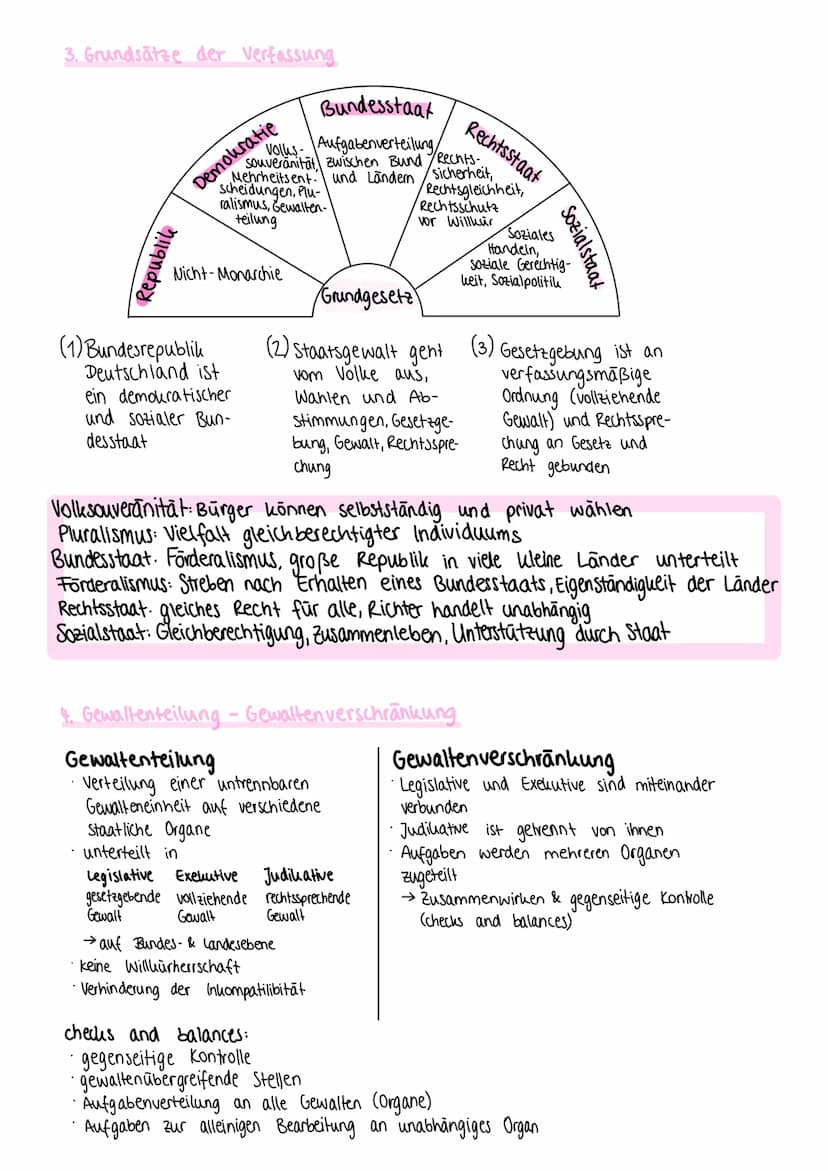 3. Grundsätze der Verfassung
Republik
Nicht-Monarchie
Demokratie
Volks-
souveränität,
Mehrheitsent-
scheidungen, Plu-
ralismus, Gewalten-
teilung
Bundesstaat
Aufgabenverteilung
zwischen Bund
und Ländern
Rechtsstaat
Rechts-
sicherheit,
Rechtsgleichheit,
Rechtsschutz
vor Willkür
Sozialstaat
Soziales
Handeln,
soziale Gerechtig-
keit, Sozialpolitik
Grundgesetz
(1) Bundesrepublik
Deutschland ist
ein demokratischer
und sozialer Bun-
desstaat
(2) Staatsgewalt geht
vom Volke aus,
Wahlen und Ab-
stimmungen, Gesetzge-
bung, Gewalt, Rechtsspre-
chung
(3) Gesetzgebung ist an
verfassungsmäßige
Ordnung (vollziehende
Gewalt) und Rechtsspre-
chung an Gesetz und
Recht gebunden
Volksouveränität: Bürger können selbstständig und privat wählen
Pluralismus: Vielfalt gleichberechtigter Individuums
Bundesstaat: Förderalismus, große Republik in viele kleine Länder unterteilt
Förderalismus: Streben nach Erhalten eines Bundesstaats, Eigenständigkeit der Länder
Rechtsstaat: gleiches Recht für alle, Richter handelt unabhängig
Sozialstaat: Gleichberechtigung, Zusammenleben, Unterstützung durch Staat
4. Gewaltenteilung - Gewaltenverschränkung
Gewaltenteilung
· Verteilung einer untrennbaren
Gewalteneinheit auf verschiedene
staatliche Organe
· unterteilt in
Legislative Exekutive Judikative
gesetzgebende vollziehende rechtssprechende
Gewalt Gewalt Gewalt
→ auf Bundes- & Landesebene
· keine Willkürherrschaft
· Verhinderung der Inkompatilibität
Gewaltenverschränkung
· Legislative und Exekutive sind miteinander
verbunden
· Judikative ist getrennt von ihnen
· Aufgaben werden mehreren Organen
zugeteilt
→ Zusammenwirken & gegenseitige Kontrolle
(checks and balances)
checks and balances:
· gegenseitige Kontrolle
· gewaltenübergreifende Stellen
· Aufgabenverteilung an alle Gewalten (Organe)
· Aufgaben zur alleinigen Bearbeitung an unabhängiges Organ